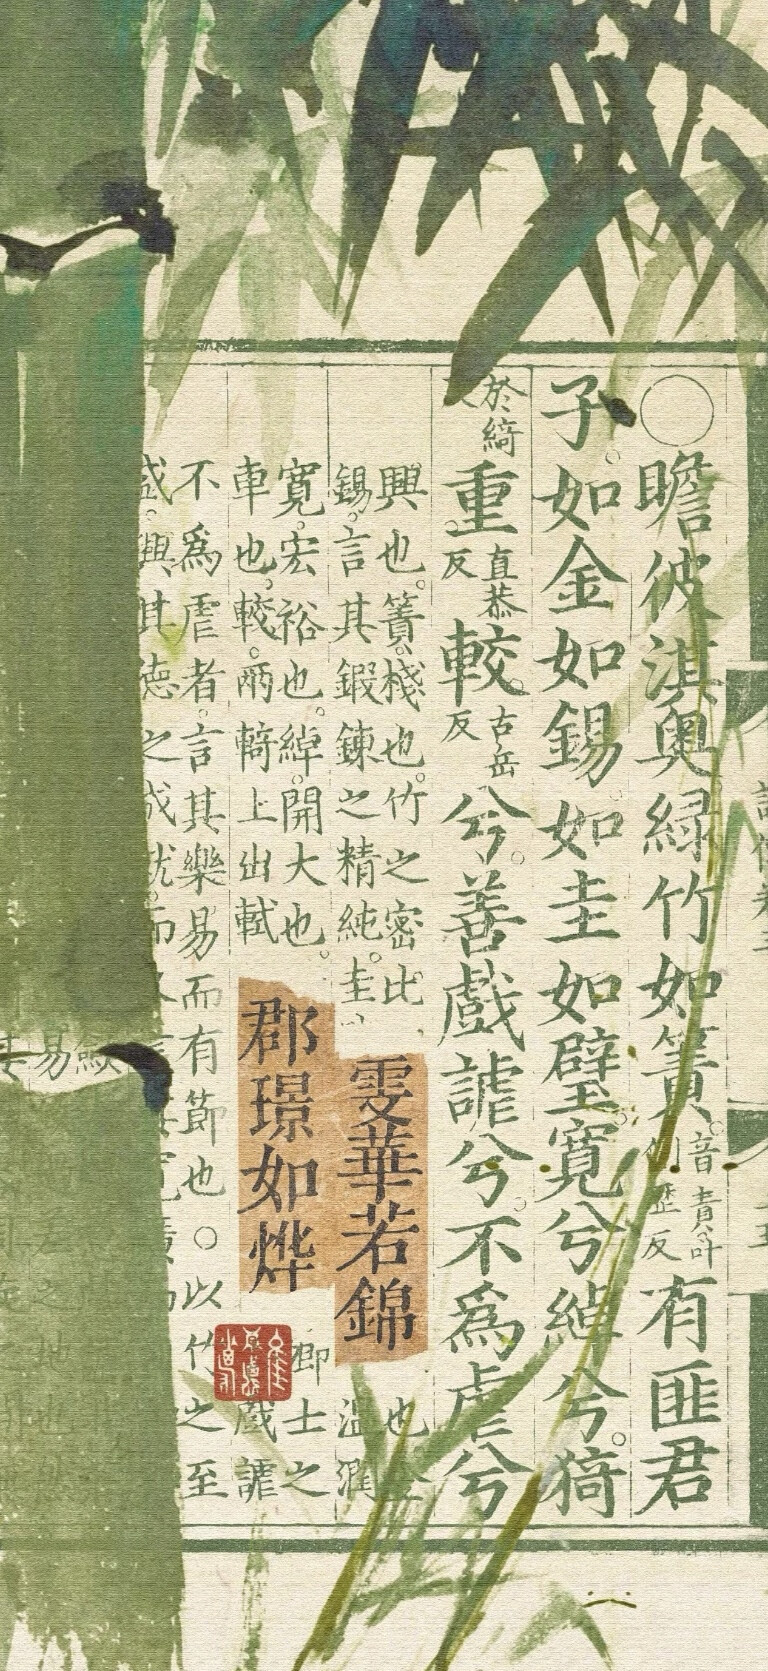 ○瞻彼淇奧綠竹如簀音責叶側歷反有匪君
子如金如錫如圭如璧寬兮綽兮猗
於綺反重直恭反較古岳反兮善戲謔兮不為虐兮
興也簀棧也竹之密比
錫言其鍛鍊之精純圭
雯華若錦
也
溫潤
寬宏裕也綽開大也
車也較兩輢上出軾
郡璟如燁
卿士之
戲謔
不為虐者言其樂易而有節也○以竹之至
盛興其德之成就而